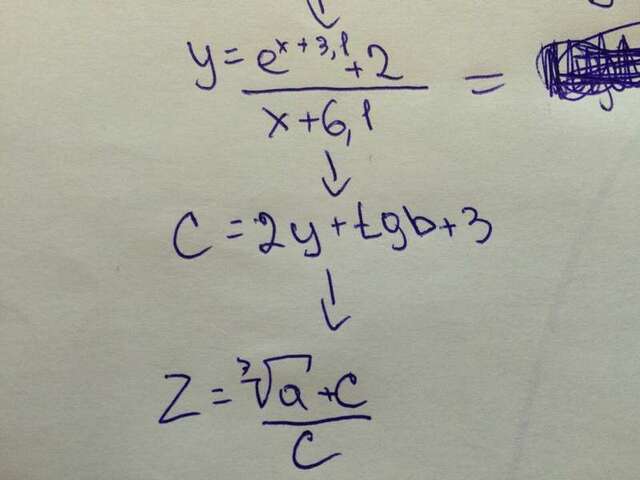 y = e^(x+3,1) + 2
x + 6,1
=
C = 2y + tgb + 3
Z = ³√a + C
C